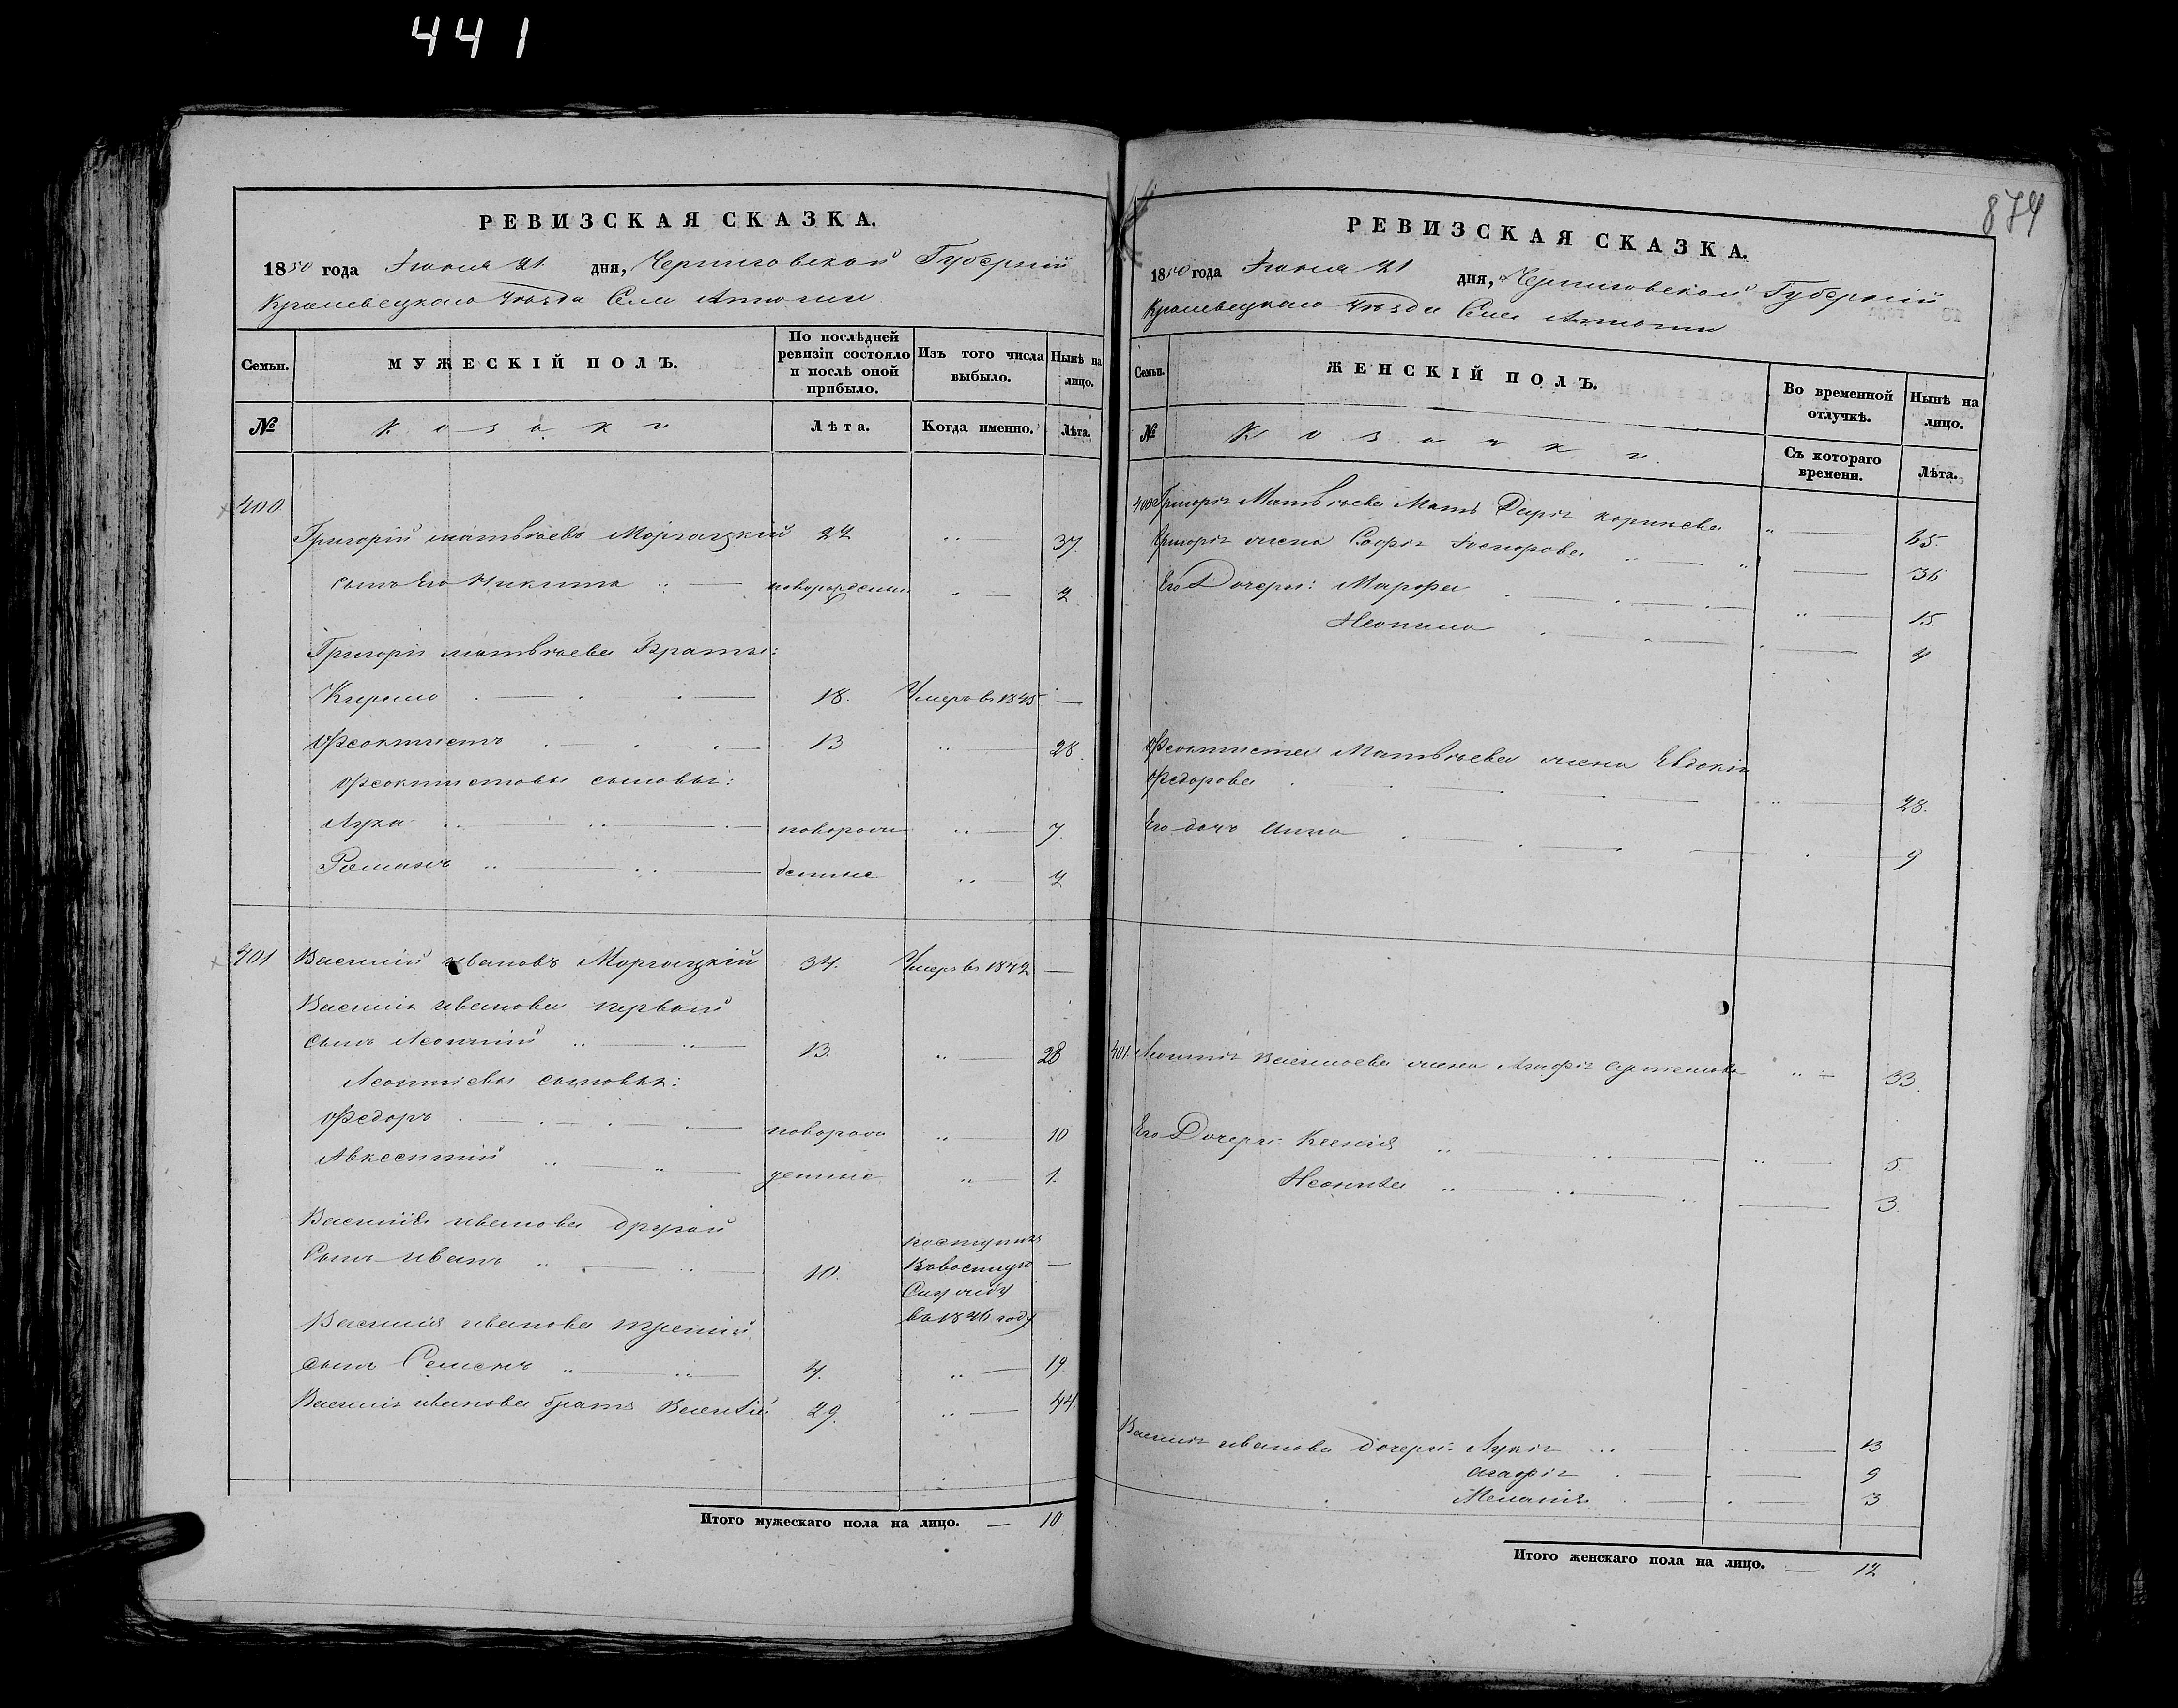 441
РЕВИЗСКАЯ СКАЗКА.
1850 года Іюня 21 дня, Черниговской Губерніи
Кролевецкаго Уѣзда Села
Семьи. МУЖЕСКІЙ ПОЛЪ. По послѣдней ревизіи состояло и послѣ оной прибыло. Изъ того числа выбыло. Нынѣ на лицо.
№ Козаки Лѣта. Когда именно. Лѣта.
400
Григорій Матвѣевъ 22 37.
сынъ Его Никита новорожденный 2
Григорія Матвѣева Братья:
Кирило 18. Умеръ въ 1845 —
Ѳеоктистъ 13 28.
Ѳеоктистовы сыновья:
Лука новорож 7.
Романъ денные 2
401 Василій Ивановъ 34. Умеръ въ 1842 —
Василія Иванова первый
сынъ Леонтій 13. 28
Леонтіевы сыновья:
Ѳедоръ новорож 10
Авксентій денные 1.
Василія Иванова другой
Сынъ Иванъ 10. поступилъ
В военную —
Службу
въ 1846 году
Василія Иванова третій
сынъ Семенъ 4. 19.
Василія Иванова братъ Василій 29. 44.
Итого мужескаго пола на лицо. — 10
874
РЕВИЗСКАЯ СКАЗКА.
1850 года Іюня 21 дня, Черниговской Губерніи
Кролевецкаго Уѣзда Села
Семьи. ЖЕНСКІЙ ПОЛЪ. Во временной отлучкѣ. Нынѣ на лицо.
№ Козачки Съ котораго времени. Лѣта.
400 Григорія Матвѣева Мать Дарія 65.
Григорія жена Софія 36
Его Дочери: Марфа 15.
Неонила 4
Ѳеоктиста Матвѣева жена Евдокія
Ѳедорова 28.
Его дочь Анна 9
401. Леонтія Васильева жена Агафія 33.
Его Дочери: Ксенія 5.
3.
Василія Иванова дочери: Лукія 13
Агафія 9
Меланія 3
Итого женскаго пола на лицо. — 12